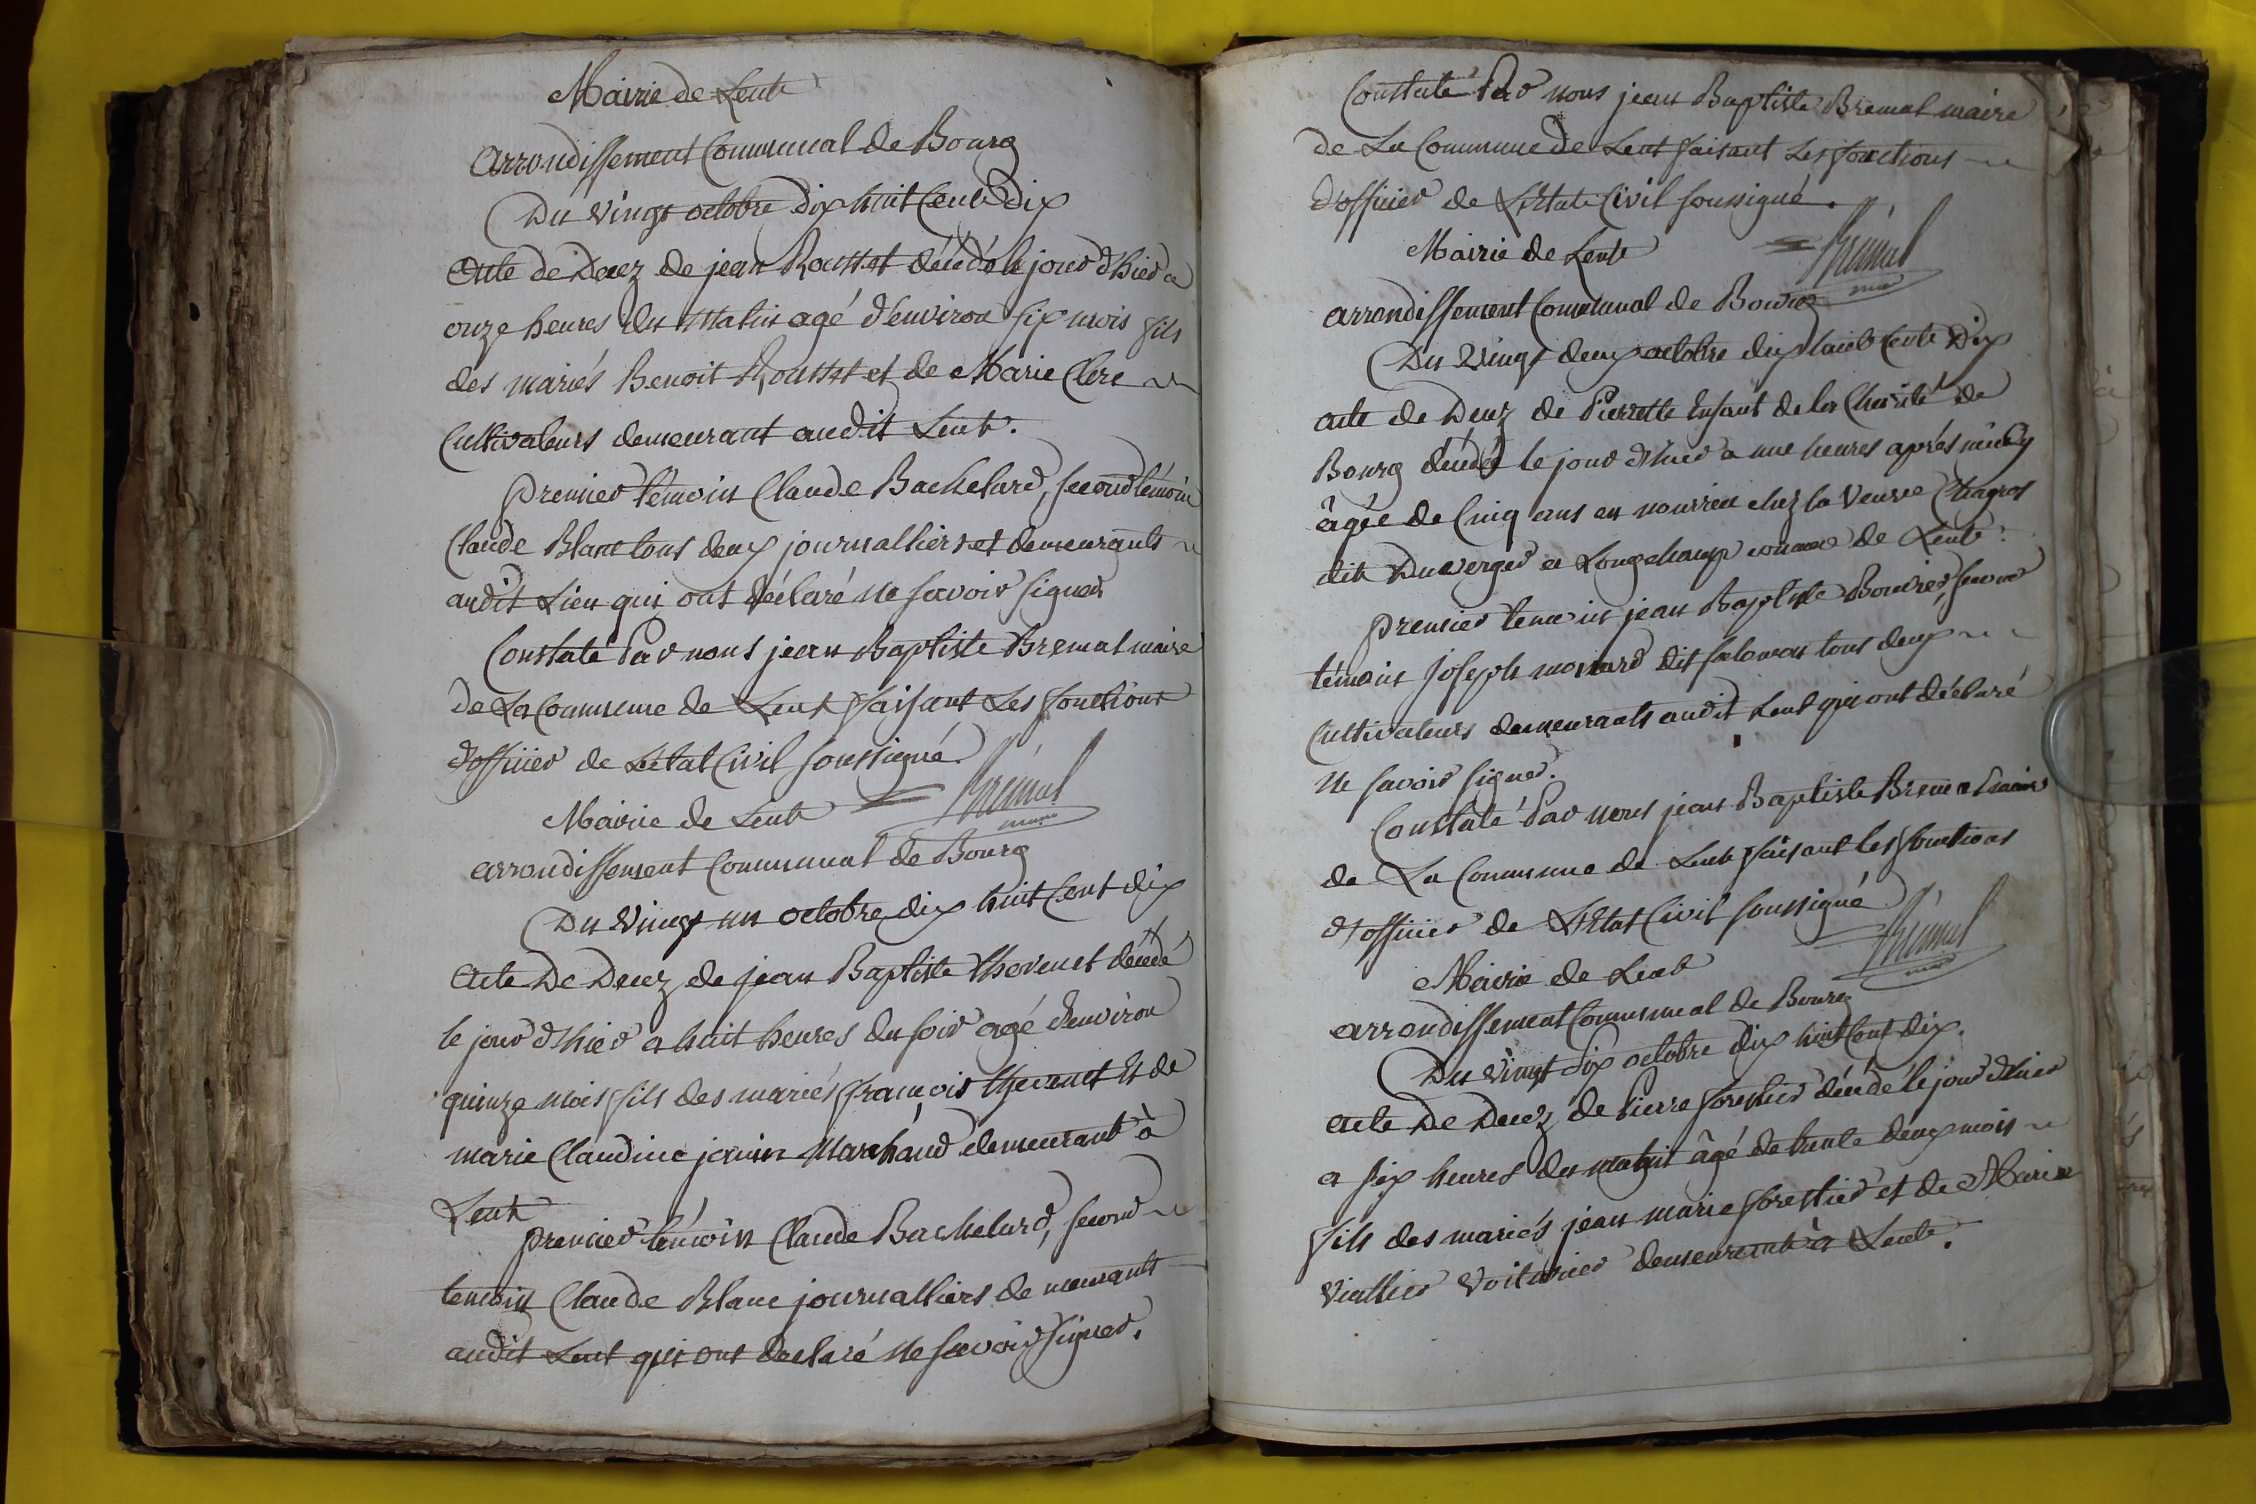 Mairie de Lent
arrondissement Communal de Bourg
Du vingt octobre dix huit Cent dix
acte de Decez de jean Rousset décédé le jour d'hier a
onze heures du matin agé d'environ six mois fils
des mariés Benoit Rousset et de Marie Clerc
Cultivateurs demeurant audit Lent.
premier témoin Claude Bachelard, second témoin
Claude Blanc tous deux journalliers et demeurants
audit Lieu qui ont déclaré ne savoir signer
Constaté Par nous jean Baptiste Bremal maire
de La Commune de Lent faisant Les fonctions
d'officier de L'état Civil soussigné.
Brémal
Mairie de Lent
arrondissement Communal de Bourg
Du vingt un octobre dix huit Cent dix
acte De Decez de jean Baptiste thevenet décédé
le jour d'hier a huit heures du soir agé d'environ
quinze mois fils des mariés françois thevenet Et de
marie Claudine janin Marchand demeurant à
Lent
premier témoin Claude Bachelard, second
temoin Claude Blanc journalliers demeurants
audit Lent qui ont declaré ne savoir signer.
Constaté Par nous jean Baptiste Bremal maire
de La Commune de Lent faisant Les fonctions
d'officier de L'Etat Civil soussigné.
Brémal
Mairie de Lent
arrondissement Communal de Bourg
Du Vingt deux octobre dix huit Cent Dix
acte de Decez de Pierrette Enfant de la Charité de
Bourg décédée le jour d'hier a une heures après midy
âgée de Cinq ans en nourrice chez la Veuve Chagros
dit Duverger a Longchamp de Lent.
premier temoin jean Baptiste Bouvier, second
témoin Joseph monard dit salomon tous deux
Cultivateurs demeurants audit Lent qui ont déclaré
ne savoir signer.
Constaté Par nous jean Baptiste Bremal maire
de La Commune de Lent faisant les fonctions
d'officier de L'Etat Civil soussigné
Brémal
Mairie de Lent
arrondissement Communal de Bourg
Du vingt six octobre dix huit Cent dix.
acte De Decez de Pierre forestier décédé le jour d'hier
a six heures du matin âgé de trente deux mois
fils des mariés jean marie forestier et de Marie
Viallier Voiturier demeurant à Lent.